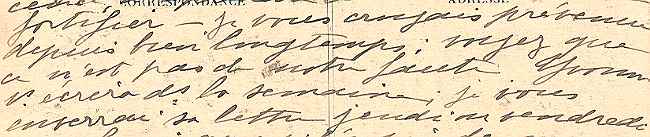 CORRESPONDANCE ADRESSE
fortifier – je vous croyais prévenue
depuis bien longtemps; voyez que
ce n'est pas de notre faute Yvonne
v. écrira ds la semaine; je vous
enverrai sa lettre jeudi ou vendredi